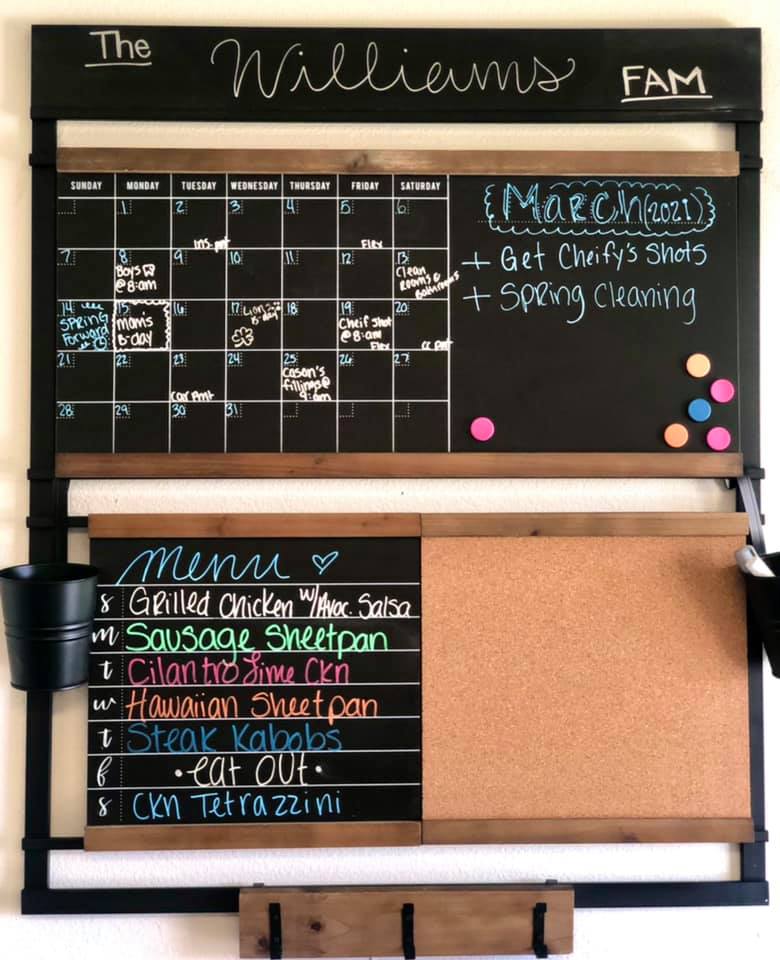 The Williams FAM
SUNDAY MONDAY TUESDAY WEDNESDAY THURSDAY FRIDAY SATURDAY
March (2021)
+ Get Cheify's Shots
+ Spring Cleaning
1 2 3 4 5 6
ins. pmt
Flex
7 8 9 10 11 12 13
Boys
@ 8:am
Clean
Rooms &
Bathrooms
14 15 16 17 18 19 20
SPRING
Forward
mom's
B-day
Lion's
B-day
Cheif shot
@ 8:am
Flex
cc pmt
21 22 23 24 25 26 27
car pmt
Cason's
fillings @
9:am
28 29 30 31
menu
s Grilled Chicken w/Avoc. Salsa
m Sausage Sheetpan
t Cilantro Lime Ckn
w Hawaiian Sheetpan
t Steak Kabobs
f • eat out •
s Ckn Tetrazzini